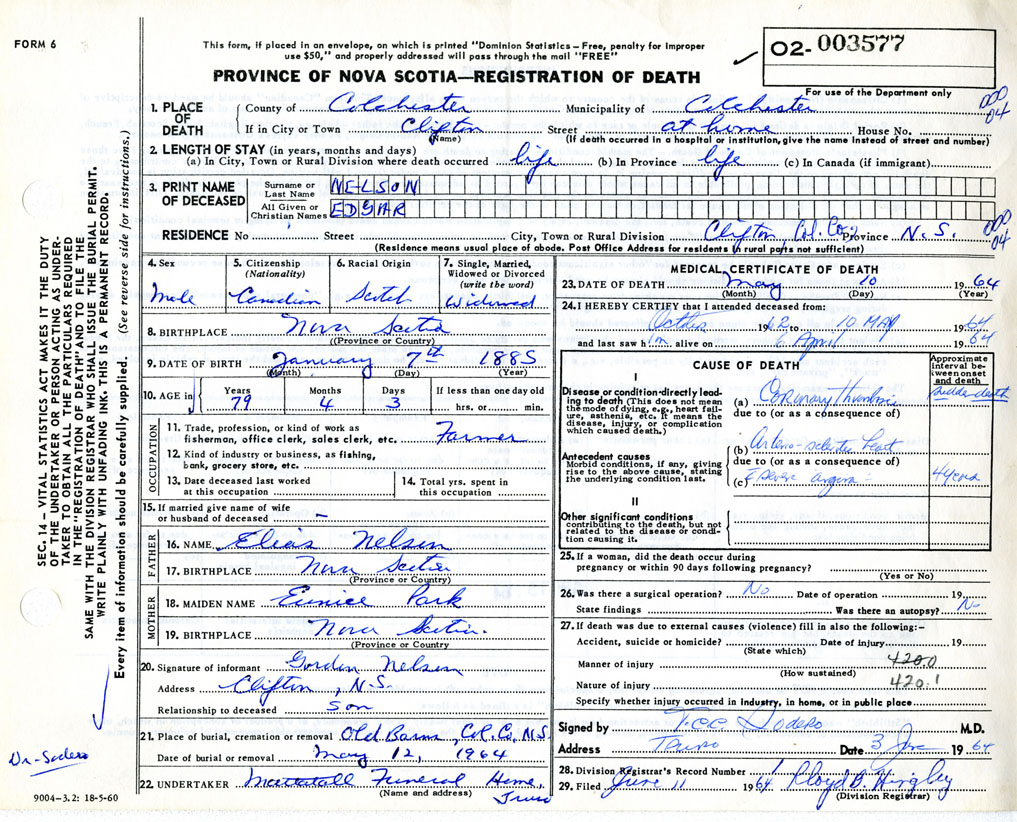 FORM 6
This form, if placed in an envelope, on which is printed "Dominion Statistics – Free, penalty for improper
use $50," and properly addressed will pass through the mail "FREE"
PROVINCE OF NOVA SCOTIA—REGISTRATION OF DEATH
02- 003577
For use of the Department only
000
04
1. PLACE OF DEATH
County of Colchester Municipality of Colchester
If in City or Town Clifton Street at home House No.
(Name) (If death occurred in a hospital or institution, give the name instead of street and number)
2. LENGTH OF STAY (in years, months and days)
(a) In City, Town or Rural Division where death occurred life (b) In Province life (c) In Canada (if immigrant)
3. PRINT NAME OF DECEASED
Surname or Last Name NELSON
All Given or Christian Names EDGAR
RESIDENCE No Street City, Town or Rural Division Clifton, Col. Co., Province N.S.
000
04
(Residence means usual place of abode. Post Office Address for residents in rural parts not sufficient)
4. Sex
Male
5. Citizenship
(Nationality)
Canadian
6. Racial Origin
Scotch
7. Single, Married,
Widowed or Divorced
(write the word)
Widowed
8. BIRTHPLACE Nova Scotia
(Province or Country)
9. DATE OF BIRTH January 7th 1885
(Month) (Day) (Year)
10. AGE in
Years 79
Months 4
Days 3
If less than one day old
hrs. or min.
OCCUPATION
11. Trade, profession, or kind of work as
fisherman, office clerk, sales clerk, etc. Farmer
12. Kind of industry or business, as fishing,
bank, grocery store, etc.
13. Date deceased last worked
at this occupation
14. Total yrs. spent in
this occupation
15. If married give name of wife
or husband of deceased –
FATHER
16. NAME Elias Nelson
17. BIRTHPLACE Nova Scotia
(Province or Country)
MOTHER
18. MAIDEN NAME Eunice Park
19. BIRTHPLACE Nova Scotia.
(Province or Country
20. Signature of informant Gordon Nelson
Address Clifton, N.S.
Relationship to deceased son
21. Place of burial, cremation or removal Old Barns, Col. Co, N.S.
Date of burial or removal May 12, 1964
22. UNDERTAKER Mattatall Funeral Home,
(Name and address) Truro
MEDICAL CERTIFICATE OF DEATH
23. DATE OF DEATH May 10 1964
(Month) (Day) (Year)
24. I HEREBY CERTIFY that I attended deceased from:
October 1962 to 10 MAY 1964
and last saw him alive on 6 April 1964
CAUSE OF DEATH
Approximate
interval be-
tween onset
and death
I
Disease or condition directly lead-
ing to death (This does not mean
the mode of dying, e.g., heart fail-
ure, asthenia, etc. It means the
disease, injury, or complication
which caused death.)
(a) Coronary Thrombosis
sudden death
due to (or as a consequence of)
Antecedent causes
Morbid conditions, if any, giving
rise to the above cause, stating
the underlying condition last.
(b) Arterio-sclerotic heart
due to (or as a consequence of)
(c) severe angina
4 years
II
Other significant conditions
contributing to the death, but not
related to the disease or condi-
tion causing it.
25. If a woman, did the death occur during
pregnancy or within 90 days following pregnancy?
(Yes or No)
26. Was there a surgical operation? No Date of operation 19
State findings Was there an autopsy? No
27. If death was due to external causes (violence) fill in also the following:–
Accident, suicide or homicide? Date of injury 19
(State which)
Manner of injury 420.0
(How sustained)
Nature of injury 420.1
Specify whether injury occurred in industry, in home, or in public place
Signed by Sodero M.D.
Address Truro Date 3 June 1964
28. Division Registrar's Record Number
29. Filed June 11 1964 Lloyd B. Hingley
(Division Registrar)
SEC. 14 – VITAL STATISTICS ACT MAKES IT THE DUTY
OF THE UNDERTAKER OR PERSON ACTING AS UNDER-
TAKER TO OBTAIN ALL THE PARTICULARS REQUIRED
IN THE "REGISTRATION OF DEATH" AND TO FILE THE
SAME WITH THE DIVISION REGISTRAR WHO SHALL ISSUE THE BURIAL PERMIT.
WRITE PLAINLY WITH UNFADING INK. THIS IS A PERMANENT RECORD.
Every item of information should be carefully supplied. (See reverse side for instructions.)
Dr-Sodero
9004–3.2: 18-5-60